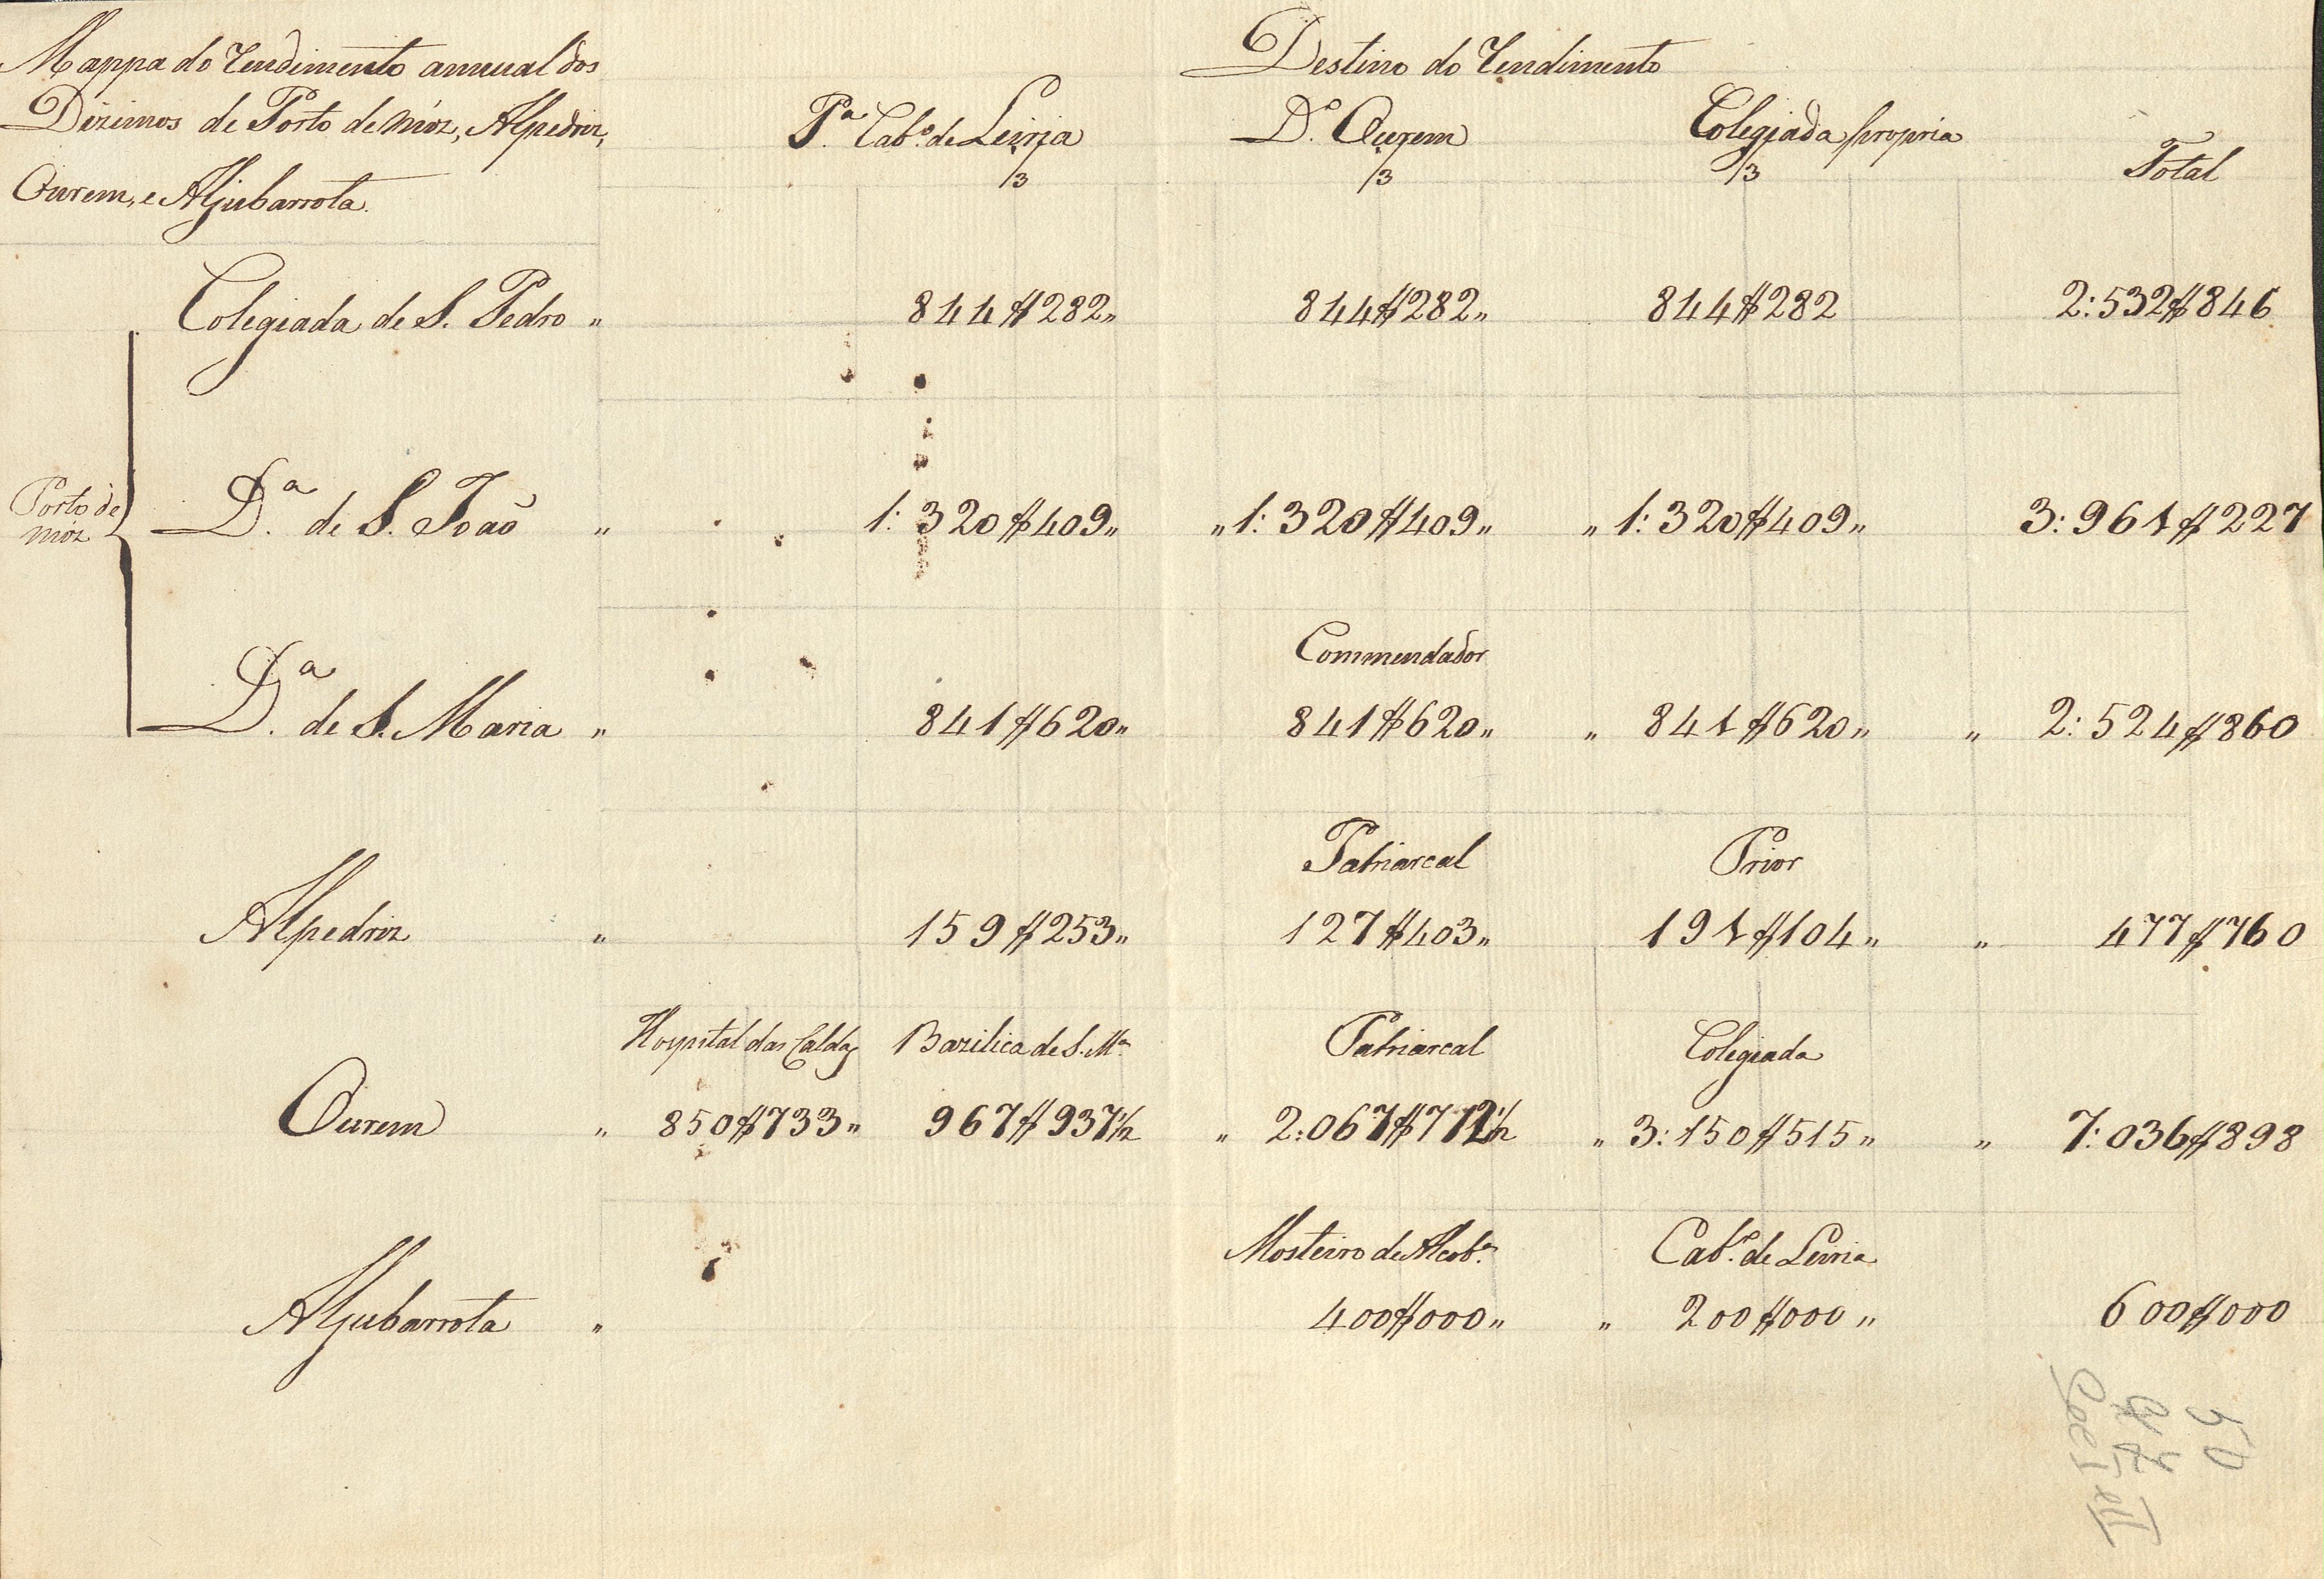 Mappa do rendimento annual dos
Dizimos de Porto de móz, Alpedriz,
Ourem, e Aljubarrota.
Destino do rendimento
Pª. Cabº. de Leiria Dº. Ourem Colegiada propria Total
/3 /3 /3
Colegiada de S. Pedro " 844$282" 844$282" 844$282 2:532$846
Porto de
móz
Dª. de S. João " 1:320$409" " 1:320$409" " 1:320$409" 3:961$227
Commendador
Dª. de S. Maria " 841$620" 841$620" " 841$620" " 2:524$860
Patriarcal Prior
Alpedriz " 159$253" 127$403" 191$104" " 477$760
Hospital das Caldas Bazilica de S. Mª Patriarcal Colegiada
Ourem " 850$733" 967$937½ " 2:067$712½ " 3:150$515" " 7:036$898
Mosteiro de Alcobª. Cabº. de Leiria
Aljubarrota " 400$000" " 200$000" 600$000
50